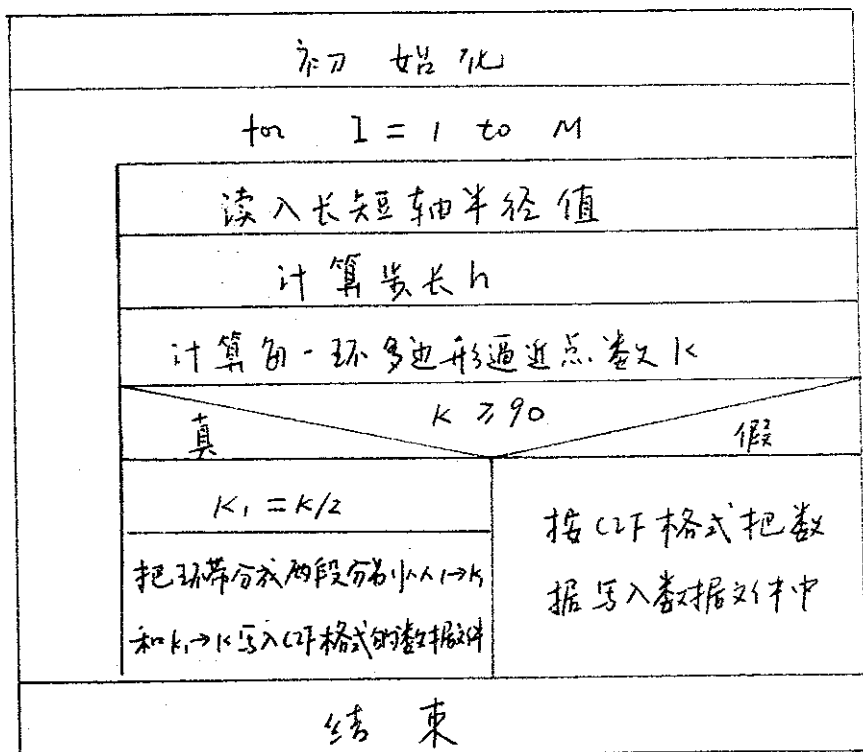 初始化
for I = 1 to M
读入长短轴半径值
计算步长h
计算每一环多边形逼近点数K
K ≥ 90
真
假
K₁ = K/2
把环带分成两段分别从1→K₁
和K₁→K写入CIF格式的数据文件
按CIF格式把数
据写入数据文件中
结束